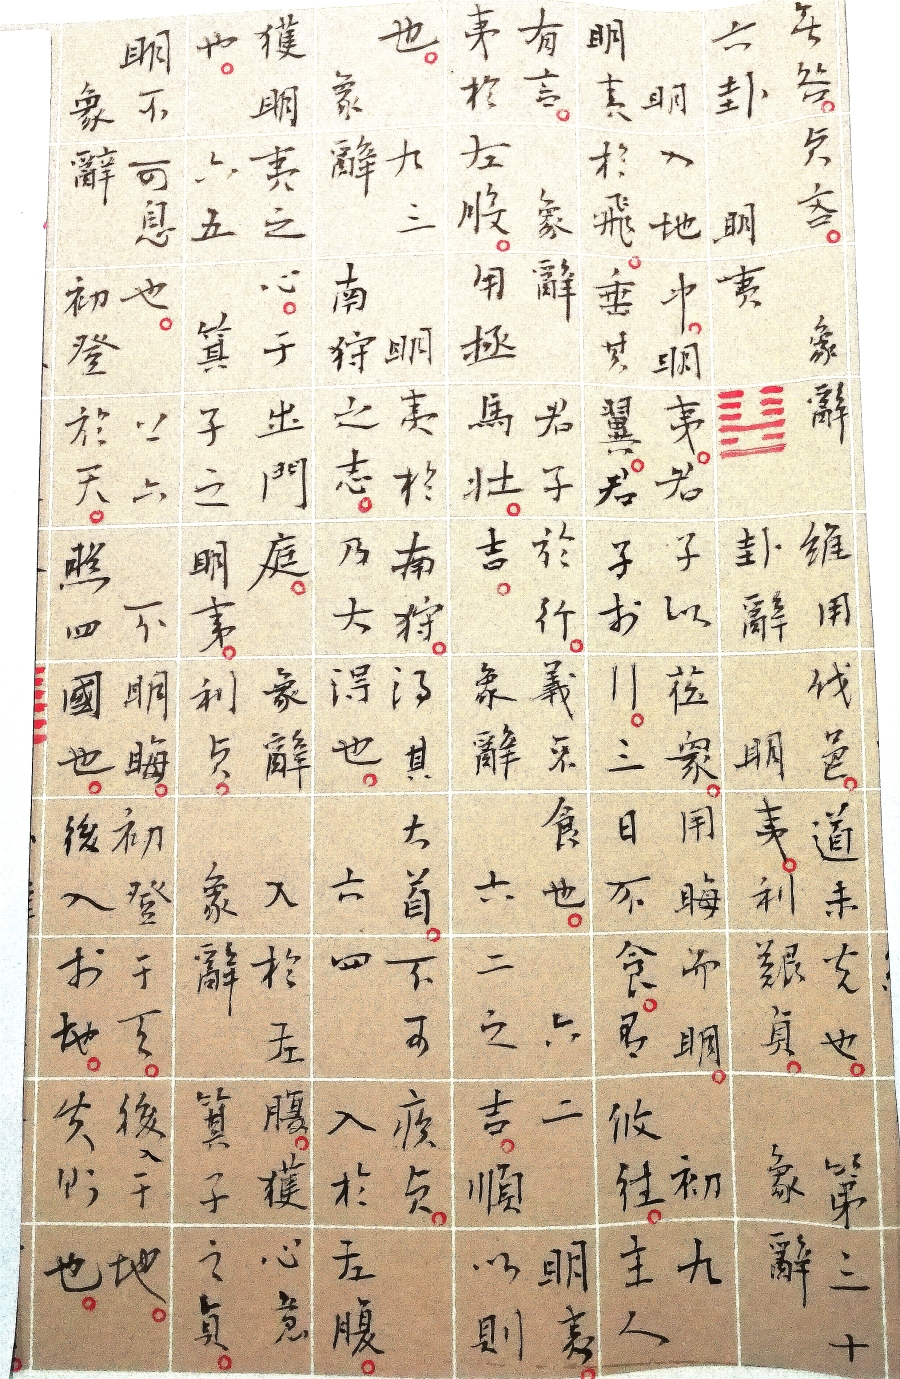 无咎。贞吝。 象辭 維用伐邑。道未光也。 第三十
六卦 明夷 卦辭 明夷。利艱貞。 象辭
明入地中。明夷。君子以莅衆。用晦而明。 初九
明夷於飛。垂其翼。君子於行。三日不食。有攸往。主人
有言。 象辭 君子於行。義不食也。 六二 明夷。
夷於左股。用拯馬壯。吉。 象辭 六二之吉。順以則
也。 九三 明夷於南狩。得其大首。不可疾贞。
象辭 南狩之志。乃大得也。 六四 入於左腹。
獲明夷之心。于出門庭。 象辭 入於左腹。獲心意
也。 六五 箕子之明夷。利贞。 象辭 箕子之貞。
明不可息也。 上六 不明晦。初登于天。後入于地。
象辭 初登於天。照四國也。後入於地。失則也。